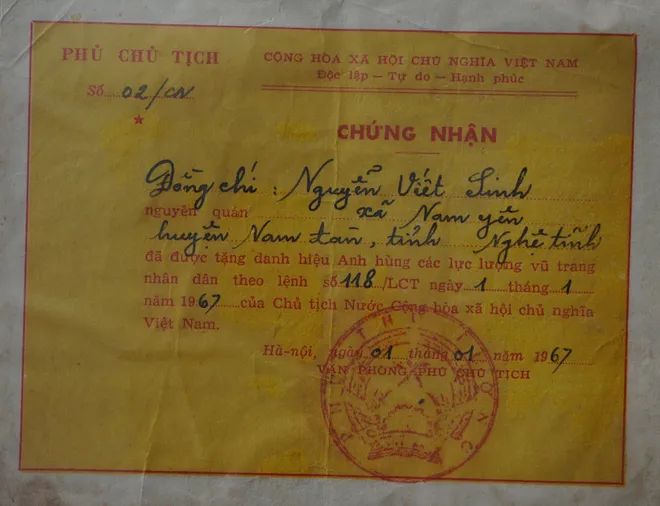 PHỦ CHỦ TỊCH
Số 02/CN
CỘNG HÒA XÃ HỘI CHỦ NGHĨA VIỆT NAM
Độc lập — Tự do — Hạnh phúc
CHỨNG NHẬN
Đồng chí : Nguyễn Viết Sinh
nguyên quán xã Nam yên
huyện Nam đàn, tỉnh Nghệ tĩnh
đã được tặng danh hiệu Anh hùng các lực lượng vũ trang
nhân dân theo lệnh số 118/LCT ngày 1 tháng 1
năm 1967 của Chủ tịch Nước Cộng hòa xã hội chủ nghĩa
Việt Nam.
Hà-nội, ngày 01 tháng 01 năm 1967
VĂN PHÒNG PHỦ CHỦ TỊCH